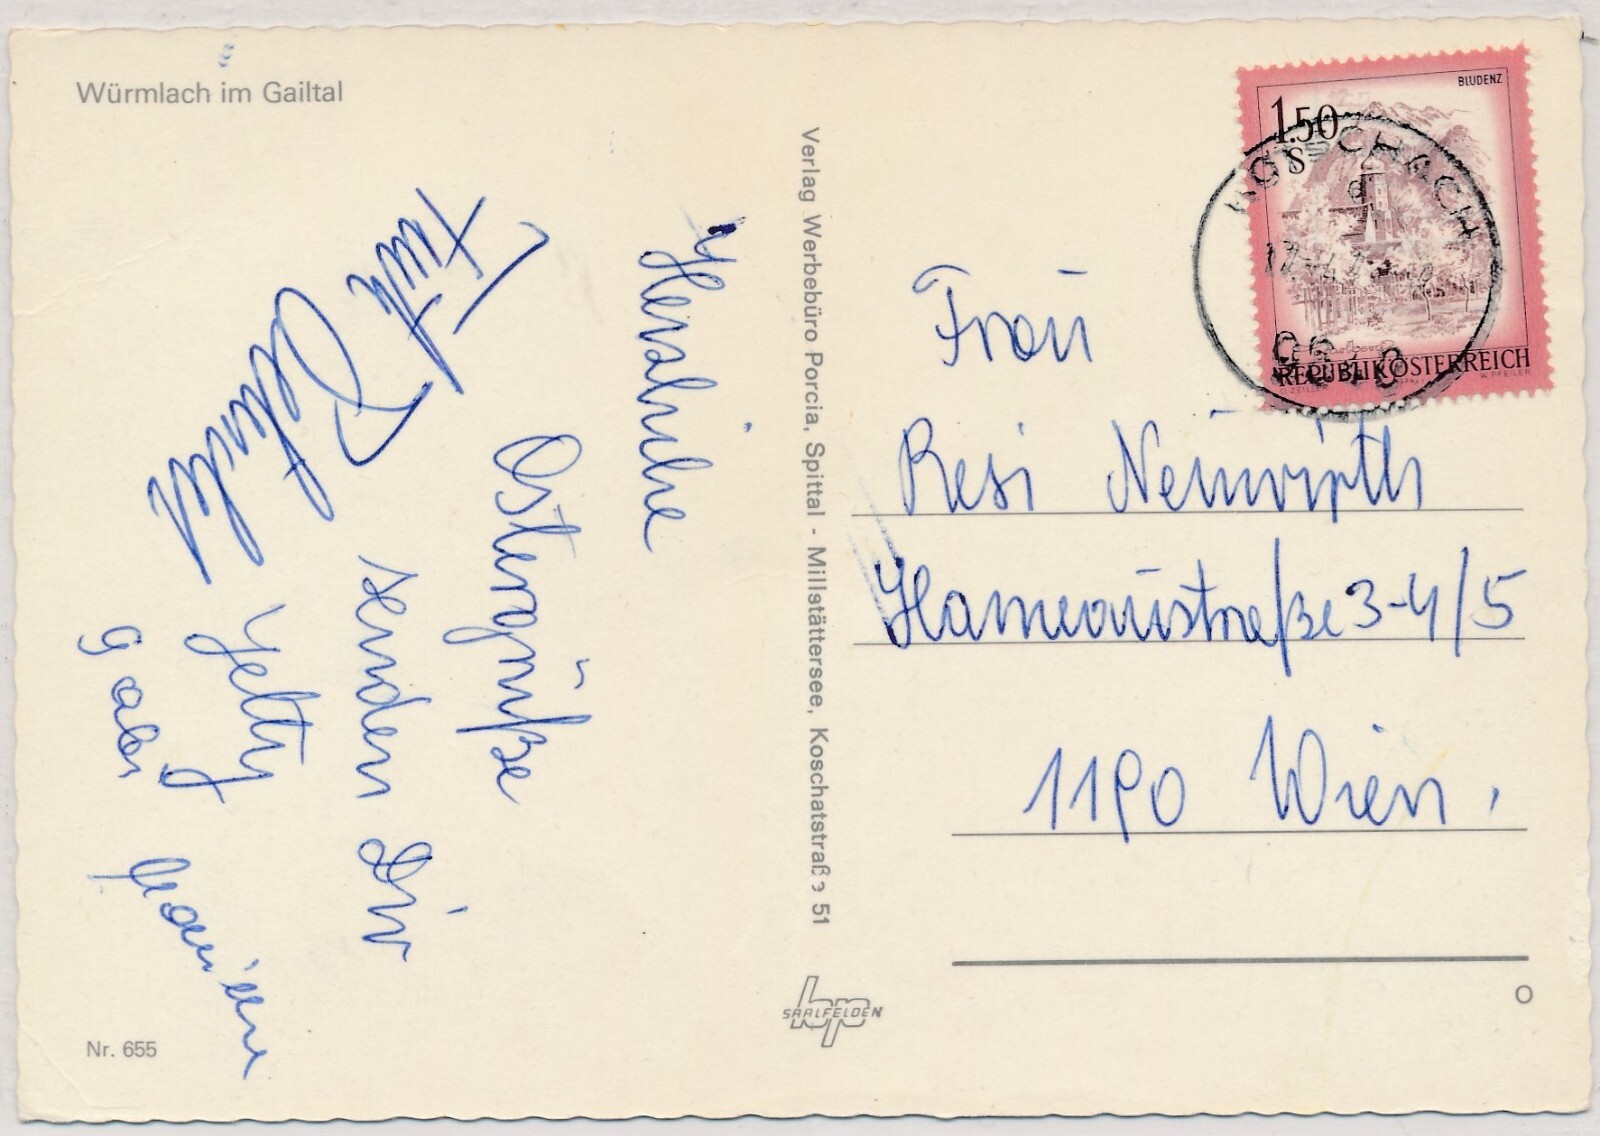 Würmlach im Gailtal
Herzliche
Ostergrüße
senden Dir
Jetty
Gabi
Verlag Werbebüro Porcia, Spittal - Millstättersee, Koschatstraße 51
bp
SAALFELDEN
Nr. 655
BLUDENZ
1.50
S
REPUBLIK ÖSTERREICH
KÖTSCHACH
9640
Frau
Resi Neuwirth
Hameaustraße 3-4/5
1190 Wien.
O